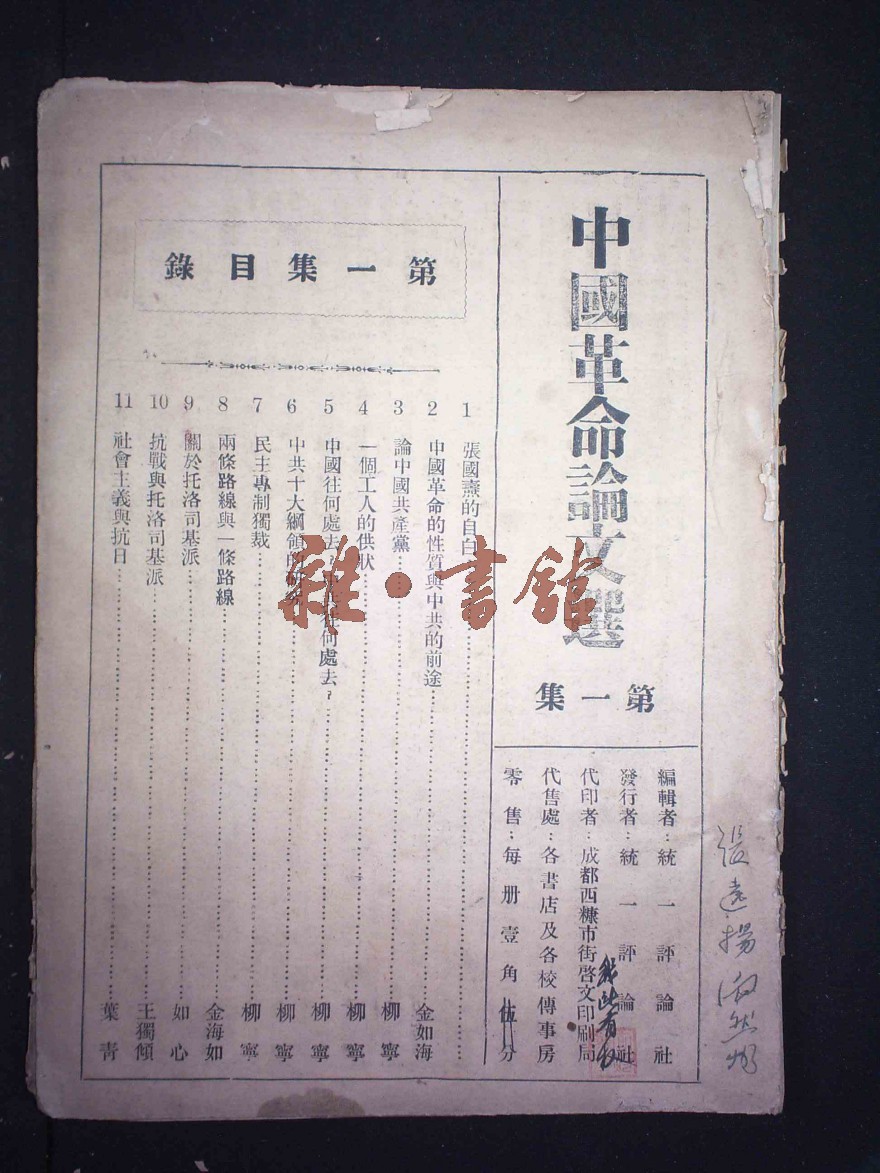 中國革命論文選
第一集
編輯者：統一評論社
發行者：統一評論社
代印者：成都西糠市街啓文印刷局
代售處：各書店及各校傳事房
零售：每册壹角伍分
第一集目錄
1 張國燾的自白
2 中國革命的性質與中共的前途 金如海
3 論中國共產黨 柳寧
4 一個工人的供狀 柳寧
5 中國往何處去？ 何處去？ 柳寧
6 中共十大綱領的 柳寧
7 民主專制獨裁 柳寧
8 兩條路線與一條路線 金海如
9 關於托洛司基派 如心
10 抗戰與托洛司基派 王獨傾
11 社會主義與抗日 葉青
雜·書館